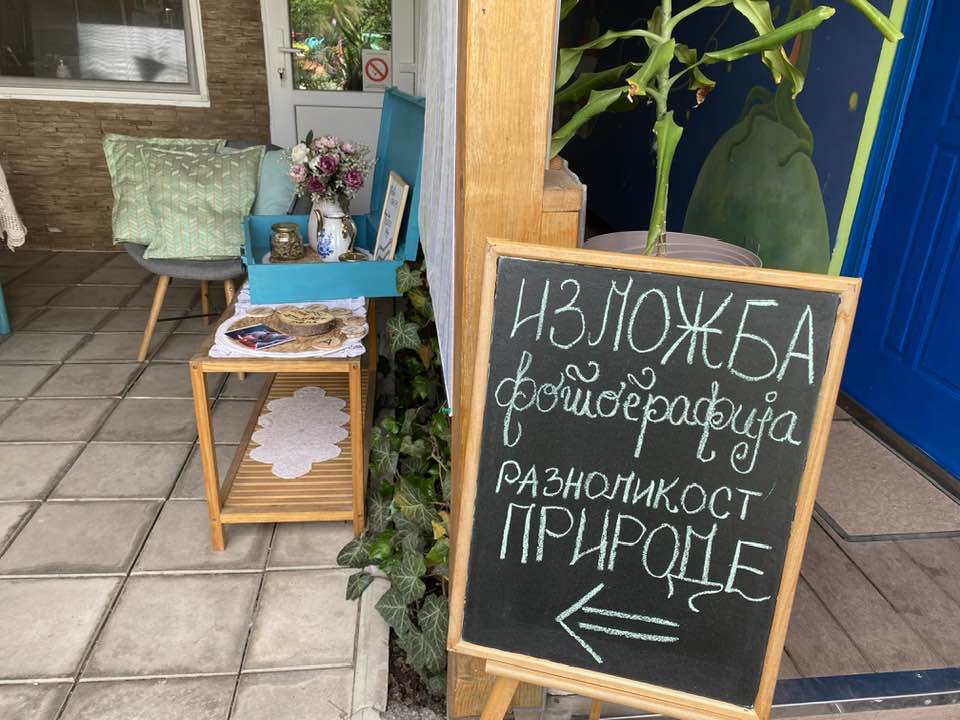 ИЗЛОЖБА
фотографија
РАЗНОЛИКОСТ
ПРИРОДЕ